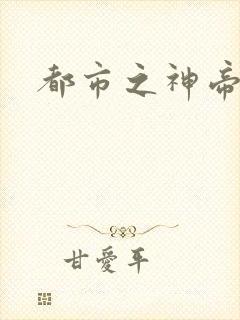 都市之神帝
甘愛平